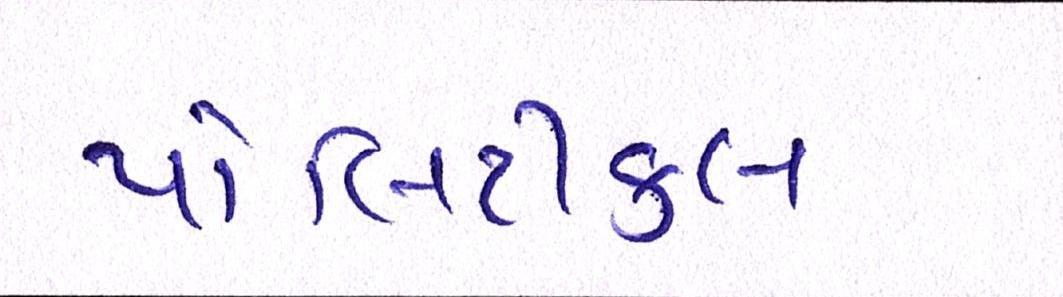 પોલિટીકલ